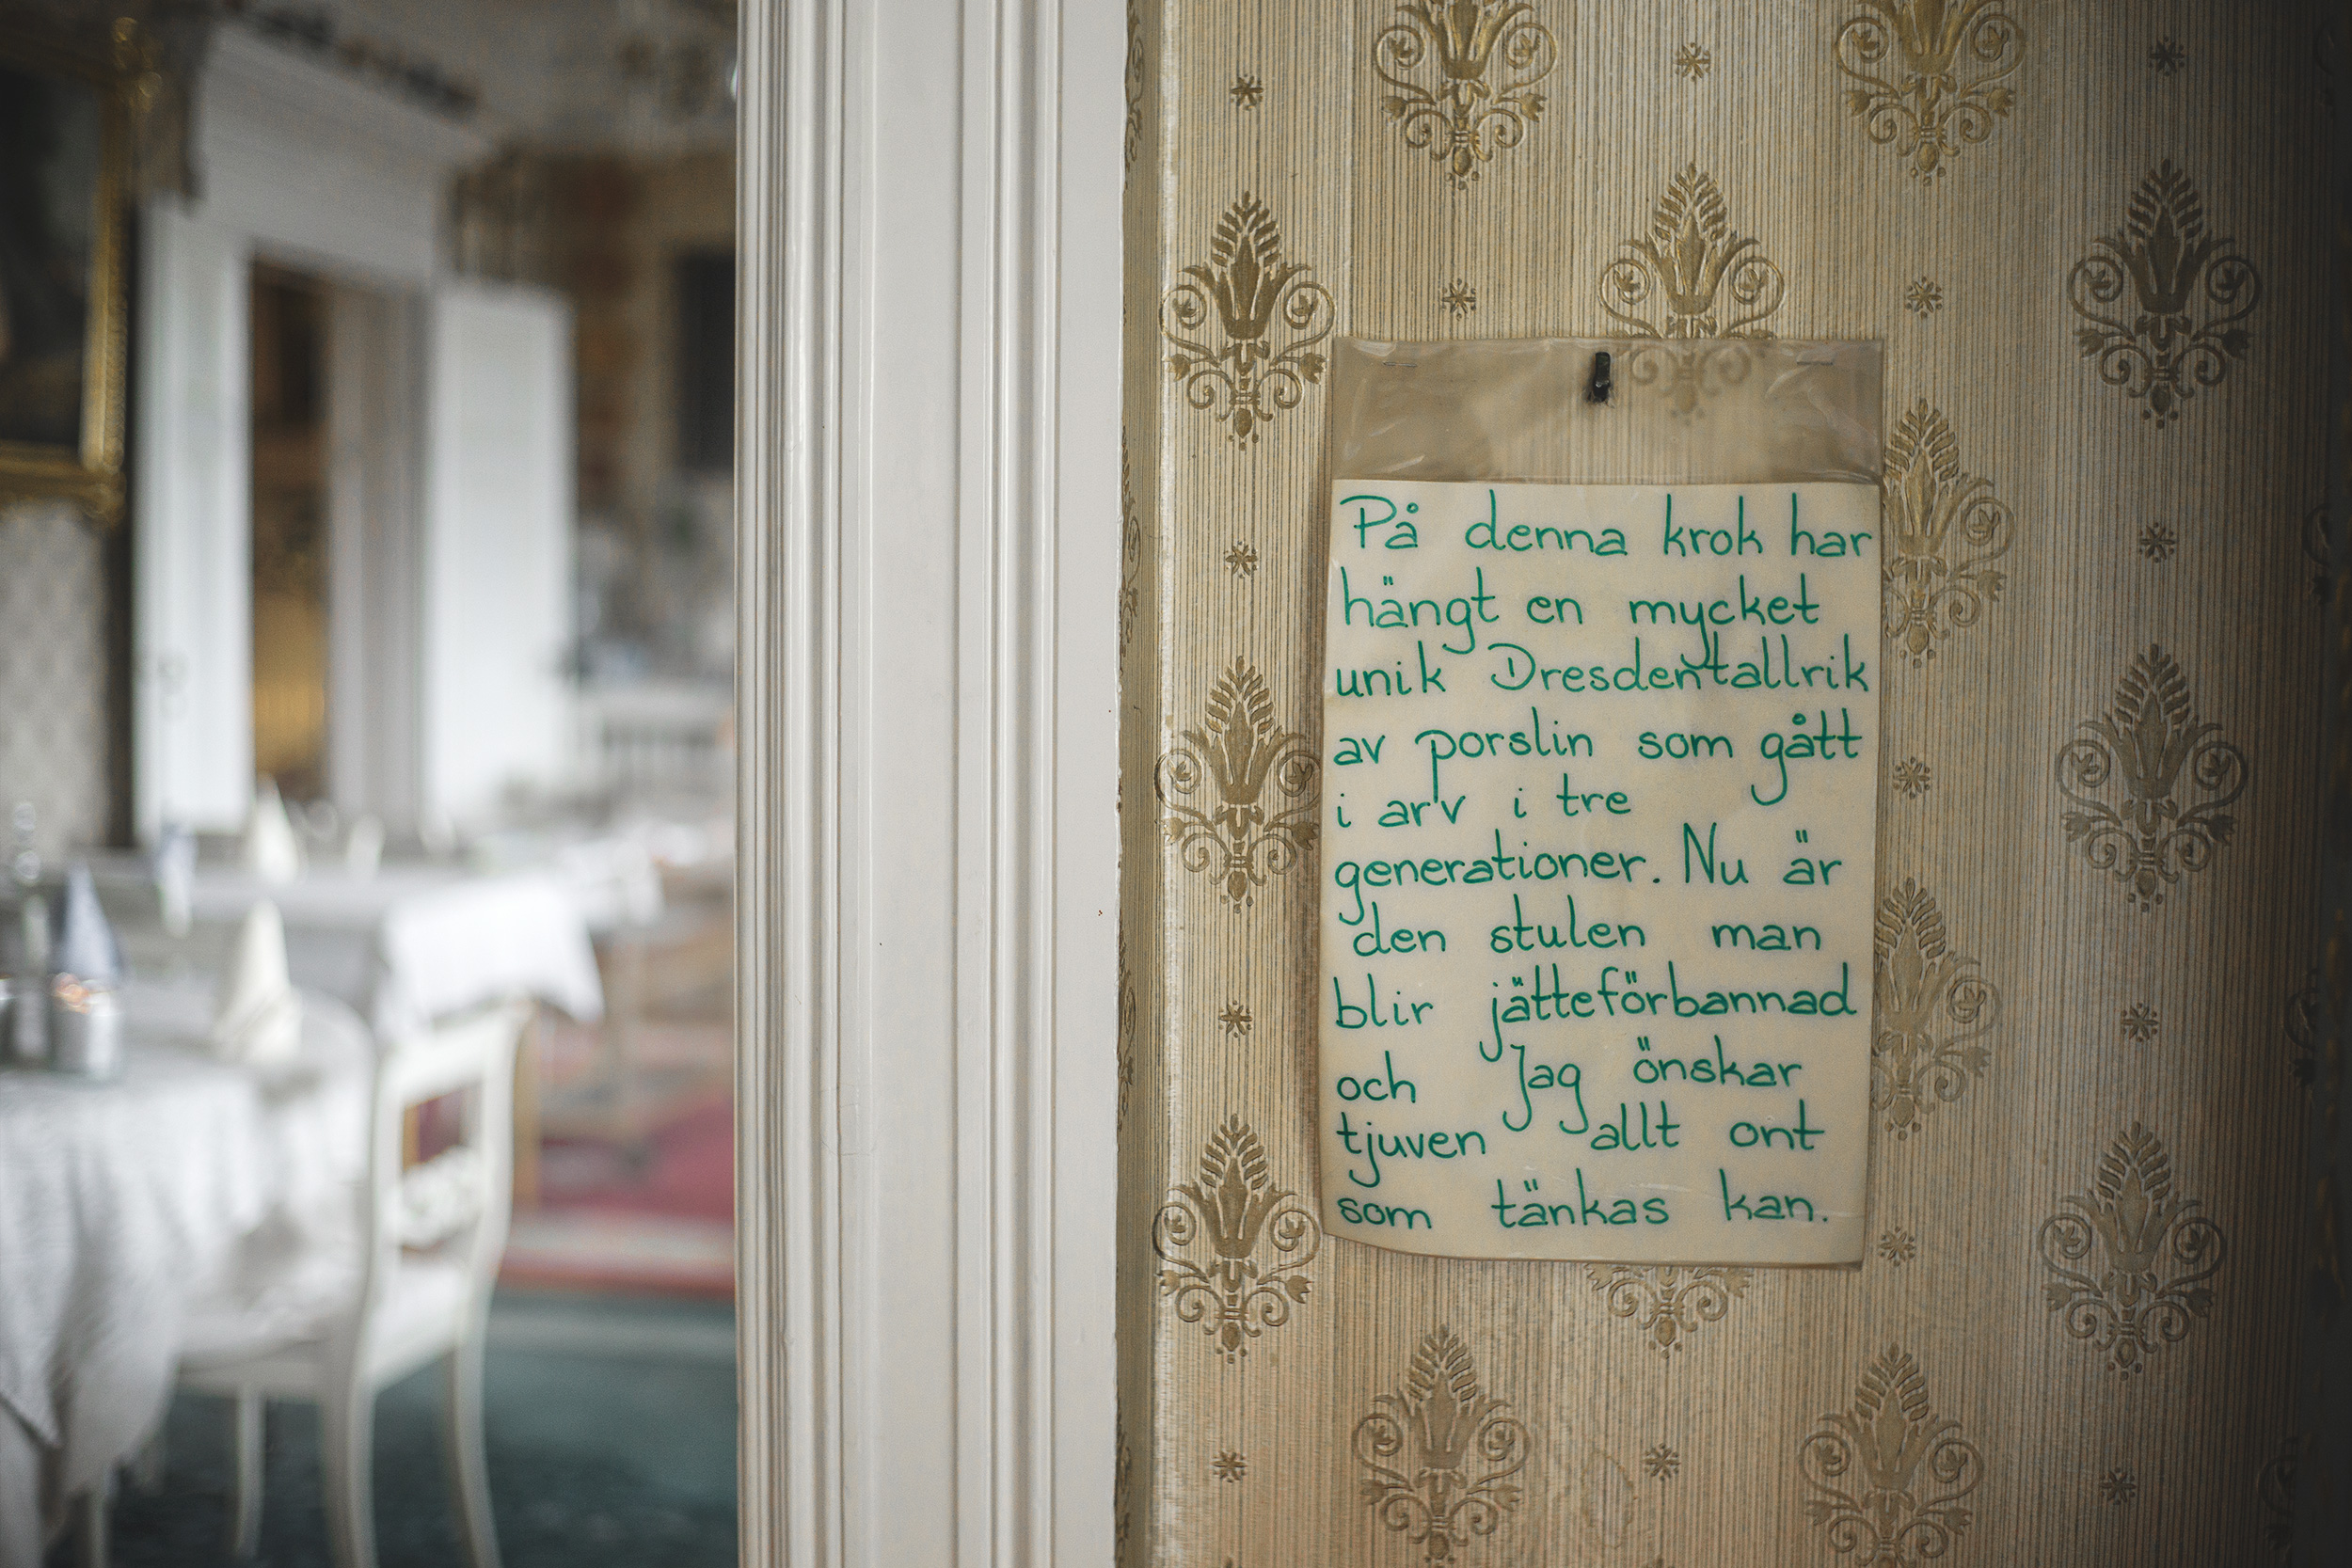 På denna krok har
hängt en mycket
unik Dresdentallrik
av porslin som gått
i arv i tre
generationer. Nu är
den stulen man
blir jätteförbannad
och Jag önskar
tjuven allt ont
som tänkas kan.